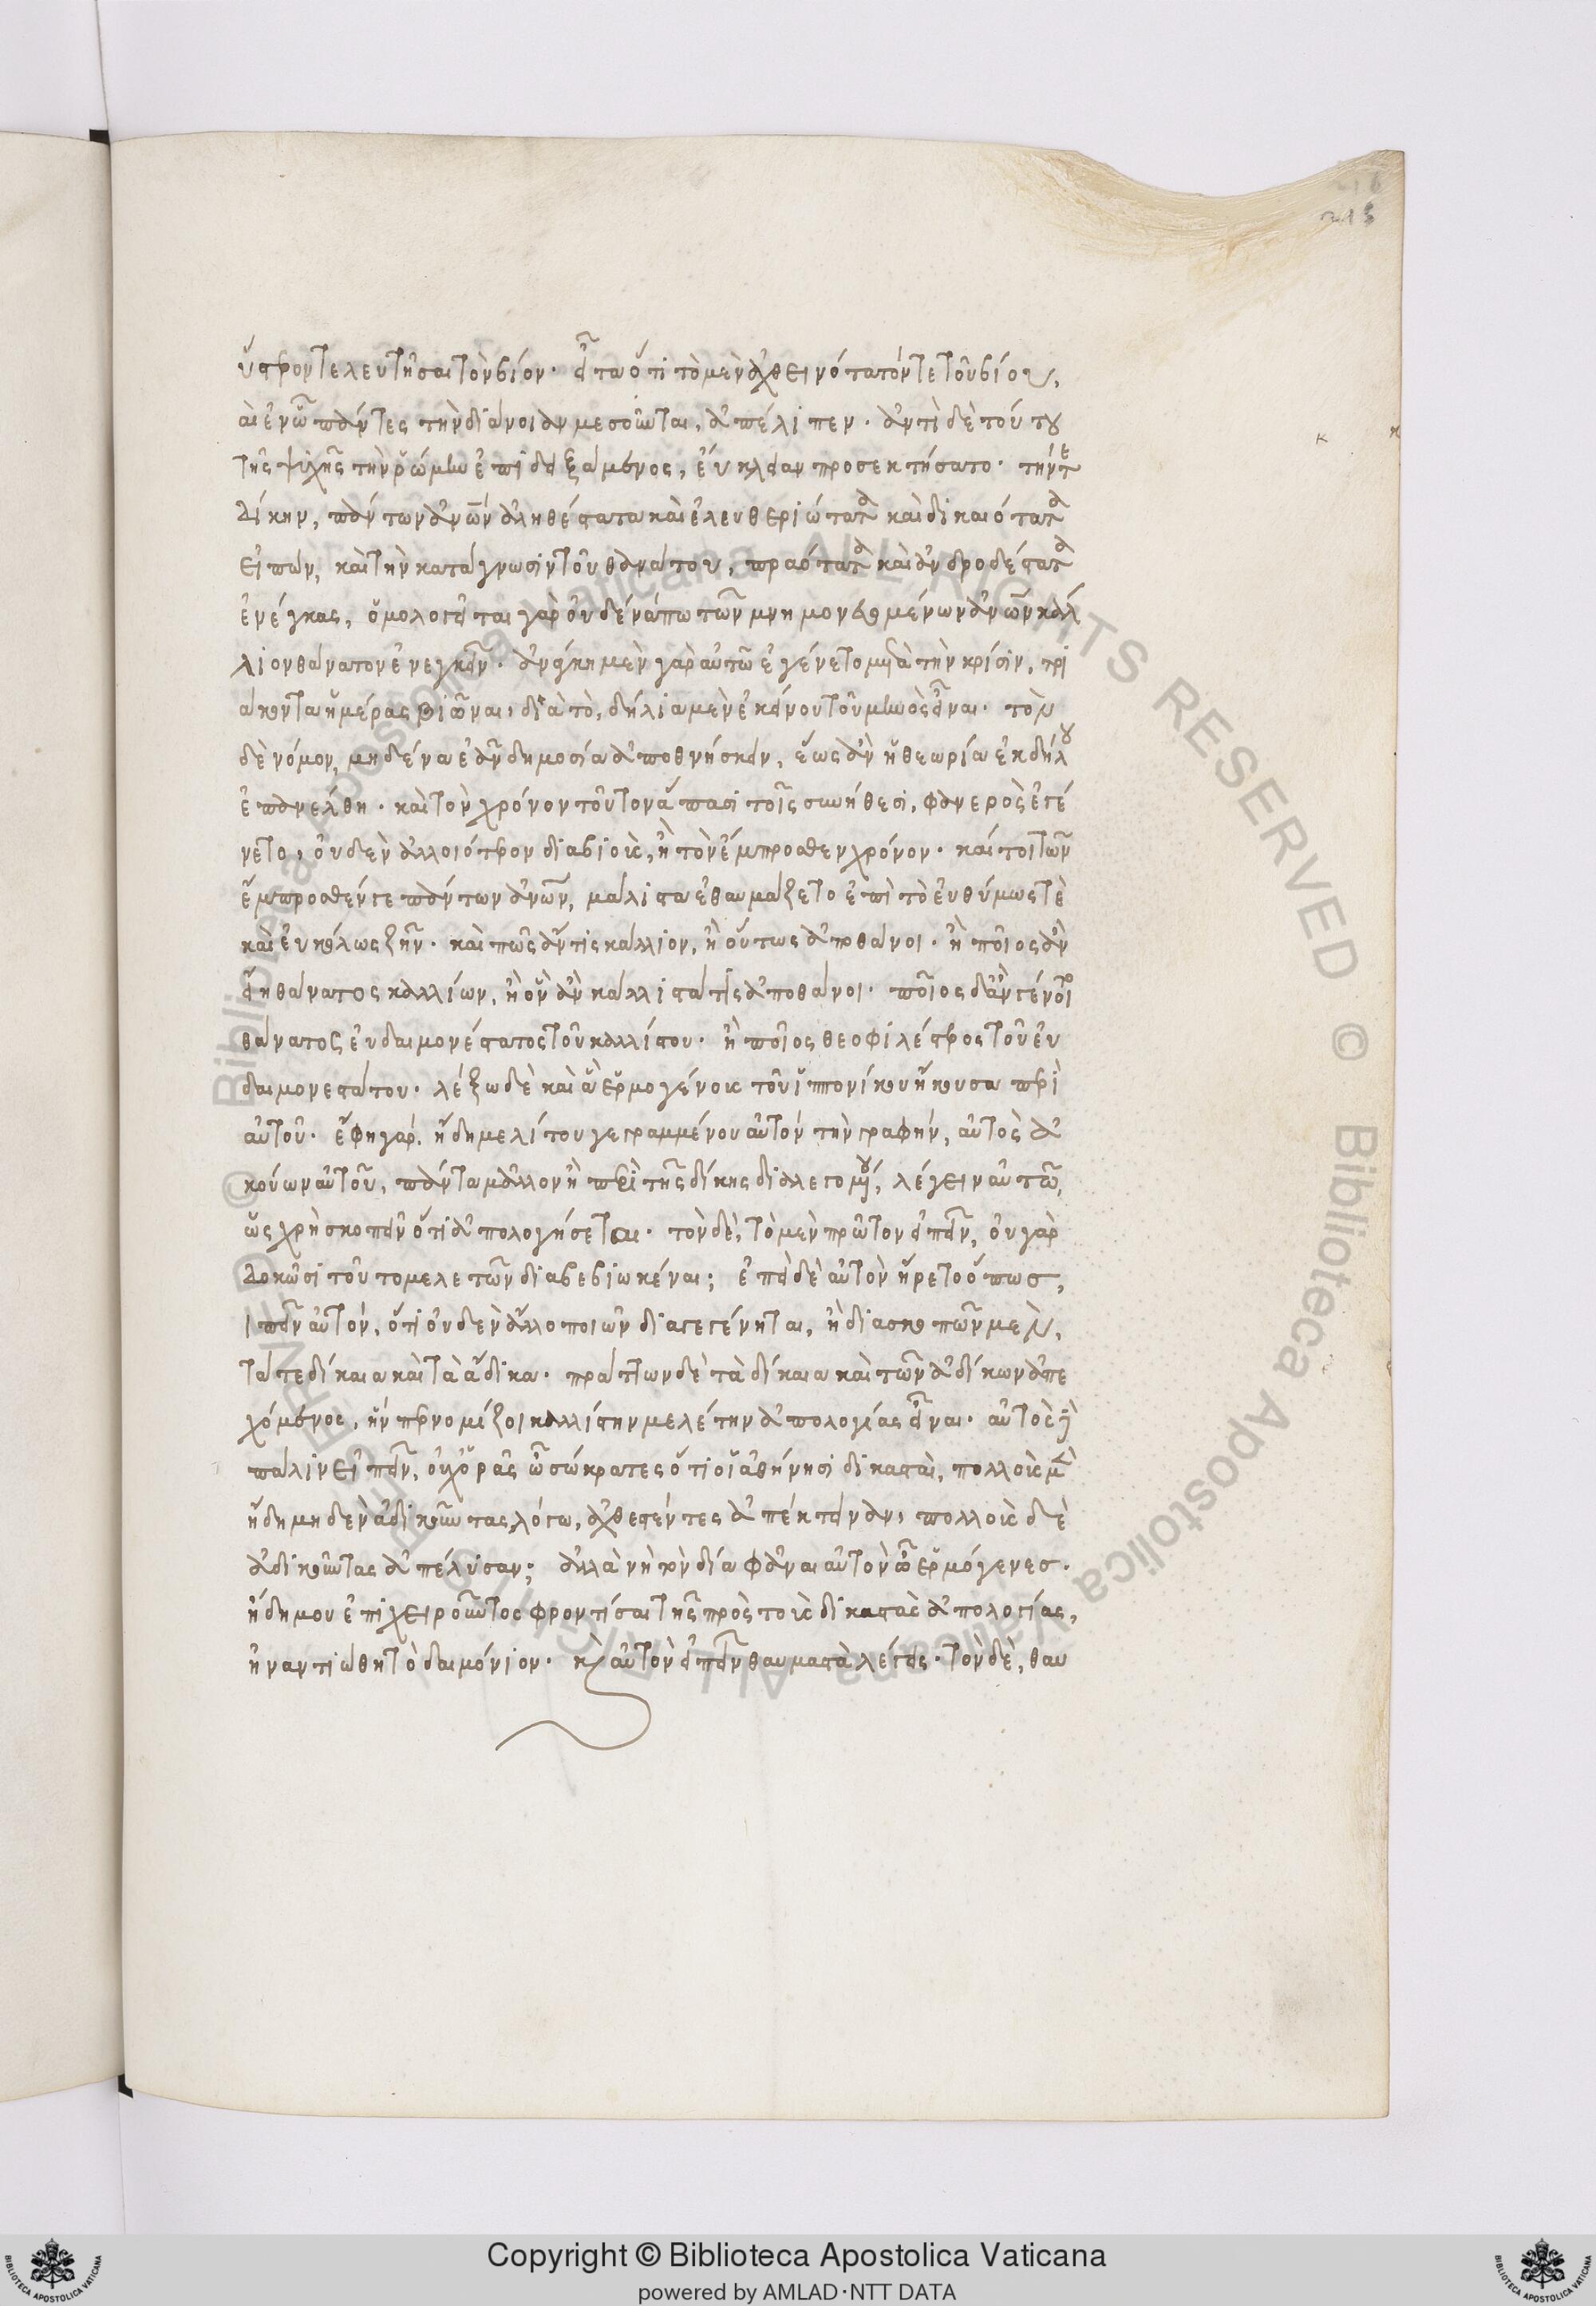 215
ὕστερον τελευτῆσαι τὸν βίον· εἶτα ὅτι τὸ μὲν ἀχθεινότατόν τε τοῦ βίου,
αι ἐν ὧ πάντες τὴν διάνοιαν μειοῦνται, ἀπέλιπεν. ἀντὶ δὲ τούτου
τῆς ψυχῆς τὴν ῥώμην ἐπιδειξάμενος, εὔκλειαν προσεκτήσατο· τήν τε
δίκην, πάντων ἀνων ἀληθέστατα καὶ ἐλευθεριώτατα καὶ δικαιότατα
εἰπών, καὶ τὴν κατάγνωσιν τοῦ θανάτου, πραότατα καὶ ἀνδρωδέστατα
ἐνέγκας, ὁμολογεῖται γὰρ οὐδένά πω τῶν μνημονευομένων ἀνων κάλ
λιον θάνατον ἐνεγκεῖν. ἀνάγκη μὲν γὰρ αὐτῶ ἐγένετο μετὰ τὴν κρίσιν, τρι
άκοντα ἡμέρας βιῶναι, διὰ τὸ, δήλια μὲν ἐκείνου τοῦ μηνὸς εἶναι· τὸν
δὲ νόμον, μηδένα ἐᾶν δημοσία ἀποθνήσκειν, ἕως ἂν ἡ θεωρία ἐκ δήλου
ἐπανέλθη. καὶ τὸν χρόνον τοῦτον ἅπασι τοῖς συνήθεσι, φανερὸς ἐγέ
νετο, οὐδὲν ἀλλοιότερον διαβιοὺς, ἢ τὸν ἔμπροσθεν χρόνον. καίτοι τῶν
ἔμπροσθέν γε πάντων ἀνων, μάλιστα ἐθαυμάζετο ἐπὶ τὸ εὐθύμως τὲ
καὶ εὐκόλως ζῆν. καὶ πῶς ἄν τις κάλλιον, ἢ οὕτως ἀποθάνοι. ἢ ποῖος ἂν
εἴη θάνατος καλλίων, ἢ ὃν ἂν κάλλιστά τις ἀποθάνοι. ποῖος δ' ἂν γένοιτο
θάνατος εὐδαιμονέστατος τοῦ καλλίστου. ἢ ποῖος θεοφιλέστερος τοῦ εὐ
δαιμονεστάτου. λέξω δὲ καὶ ἃ ἑρμογένους τοῦ ἱππονίκου ἤκουσα περὶ
αὐτοῦ. ἔφη γάρ, ἤδη μελίτου γεγραμμένου αὐτὸν τὴν γραφήν, αὐτὸς ἀ
κούων αὐτοῦ, πάντα μᾶλλον ἢ περὶ τῆς δίκης διαλεγομένου, λέγειν αὐτῶ,
ὡς χρὴ σκοπεῖν ὅτι ἀπολογήσεται. τὸν δὲ, τὸ μὲν πρῶτον εἰπεῖν, οὐ γὰρ
δοκῶ σοι τοῦτο μελετῶν διαβεβιωκέναι; ἐπεὶ δὲ αὐτὸν ἤρετο ὅπως,
ιπεῖν αὐτόν, ὅτι οὐδὲν ἄλλο ποιῶν διαγεγένηται, ἢ διασκοπῶν μὲν,
τά τε δίκαια καὶ τὰ ἄδικα. πράττων δὲ τὰ δίκαια καὶ τῶν ἀδίκων ἀπε
χόμενος, ἥν περ νομίζοι καλλίστην μελέτην ἀπολογίας εἶναι. αὐτὸς δὲ
πάλιν εἰπεῖν, οὐχ ὁρᾶς ὦ σώκρατες ὅτι οἱ ἀθήνησι δικασταὶ, πολλοὺς μὲν
ἤδη μηδὲν ἀδικοῦντας λόγω, ἀχθεσθέντες ἀπέκτειναν, πολλοὺς δὲ
ἀδικοῦντας ἀπέλυσαν; ἀλλὰ νὴ τὸν δία φάναι αὐτὸν ὦ ἑρμόγενες.
ἤδη μου ἐπιχειροῦντος φροντίσαι τῆς πρὸς τοὺς δικαστὰς ἀπολογίας,
ἠναντιώθη τὸ δαιμόνιον. καὶ αὐτὸν εἰπεῖν θαυμαστὰ λέγεις. τὸν δὲ, θαυ
© Biblioteca Apostolica Vaticana ALL RIGHTS RESERVED © Biblioteca Apostolica Vaticana ALL RIGHTS RESERVED
Copyright © Biblioteca Apostolica Vaticana
powered by AMLAD·NTT DATA
BIBLIOTECA APOSTOLICA VATICANA
BIBLIOTECA APOSTOLICA VATICANA